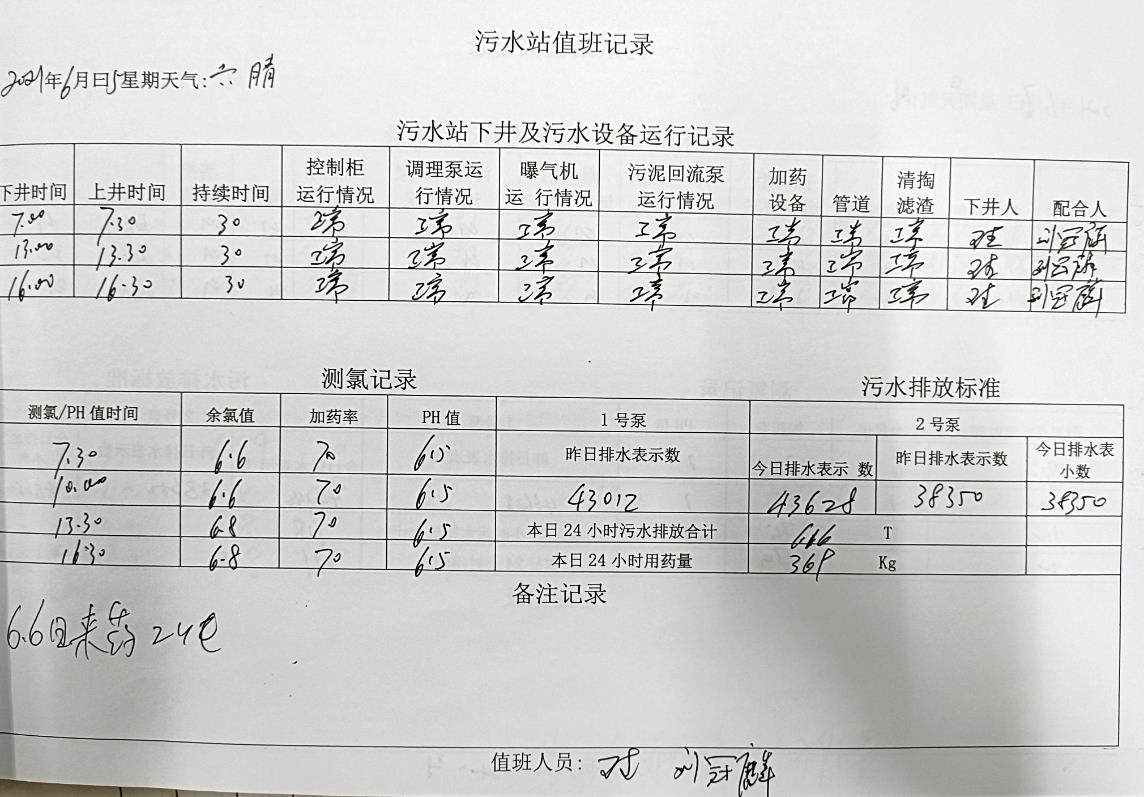 污水站值班记录
2021年6月日5星期天气:六 晴
污水站下井及污水设备运行记录
下井时间 上井时间 持续时间 控制柜运行情况 调理泵运行情况 曝气机运 行情况 污泥回流泵运行情况 加药设备 管道 清掏滤渣 下井人 配合人
7.00 7.30 30 正常 正常 正常 正常 正常 正常 正常 刘冠麟
13.00 13.30 30 正常 正常 正常 正常 正常 正常 正常 刘冠麟
16.00 16.30 30 正常 正常 正常 正常 正常 正常 正常 刘冠麟
测氯记录 污水排放标准
测氯/PH值时间 余氯值 加药率 PH值 1号泵 2号泵
昨日排水表示数 今日排水表示 数 昨日排水表示数 今日排水表小数
7.30 6.6 70 6.5
10.00 6.6 70 6.5 43012 43628 38350 38350
13.30 6.8 70 6.5 本日24小时污水排放合计 666 T
16.30 6.8 70 6.5 本日24小时用药量 369 Kg
备注记录
6.6日来药24
值班人员: 刘冠麟